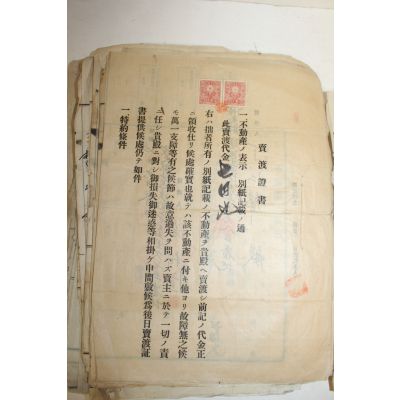 賣渡證書
一不動産ノ表示 別紙記載ノ通
此賣渡代金
右ハ拙者所有ノ別紙記載ノ不動産ヲ貴殿ヘ賣渡シ前記ノ代金正
ニ領收仕リ候處確實也就テハ該不動産ニ付キ他ヨリ故障無之候
モ萬一支障等有之候節ハ故意過失ヲ問ハズ賣主ニ於テ一切ノ責
ニ任シ貴殿ニ對シ御損失御迷惑等相掛ケ申間敷候爲後日賣渡証
書提供候處仍テ如件
一、特約條件